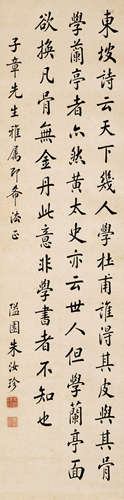 東坡詩云天下幾人學杜甫誰得其皮與其骨
學蘭亭者亦然黃太史亦云世人但學蘭亭面
欲換凡骨無金丹此意非學書者不知也
子章先生雅屬即希法正
隘園朱汝珍